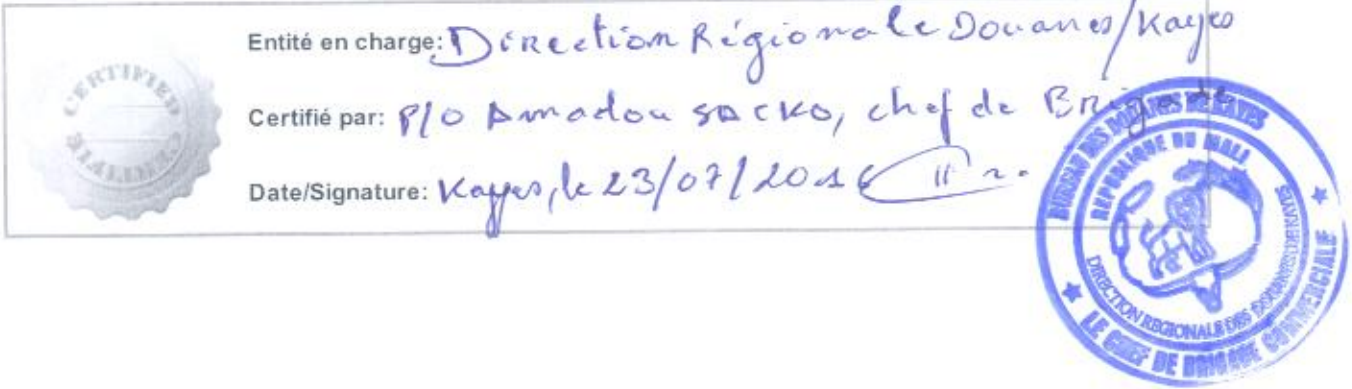 Entité en charge: Direction Régionale Douanes/Kayes
Certifié par: P/O Amadou SACKO, chef de Brigade
Date/Signature: Kayes, le 23/07/2016
CERTIFIED
BUREAU DES DOUANES DE KAYES
REPUBLIQUE DU MALI
DIRECTION REGIONALE DES DOUANES DE KAYES
LE CHEF DE BRIGADE COMMERCIALE